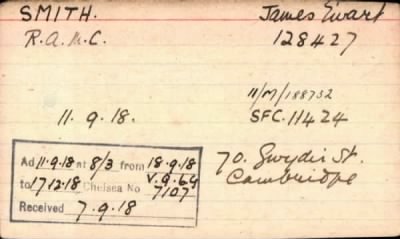 SMITH. James Ewart
R.A.M.C. 128427
11/M/188732
11.9.18. SFC.11424
Ad 11.9.18 at 8/3 from 18.9.18
to 17.12.18 Chelsea No V.9.64
7107
Received 7.9.18
70. Gwydir St.
Cambridge